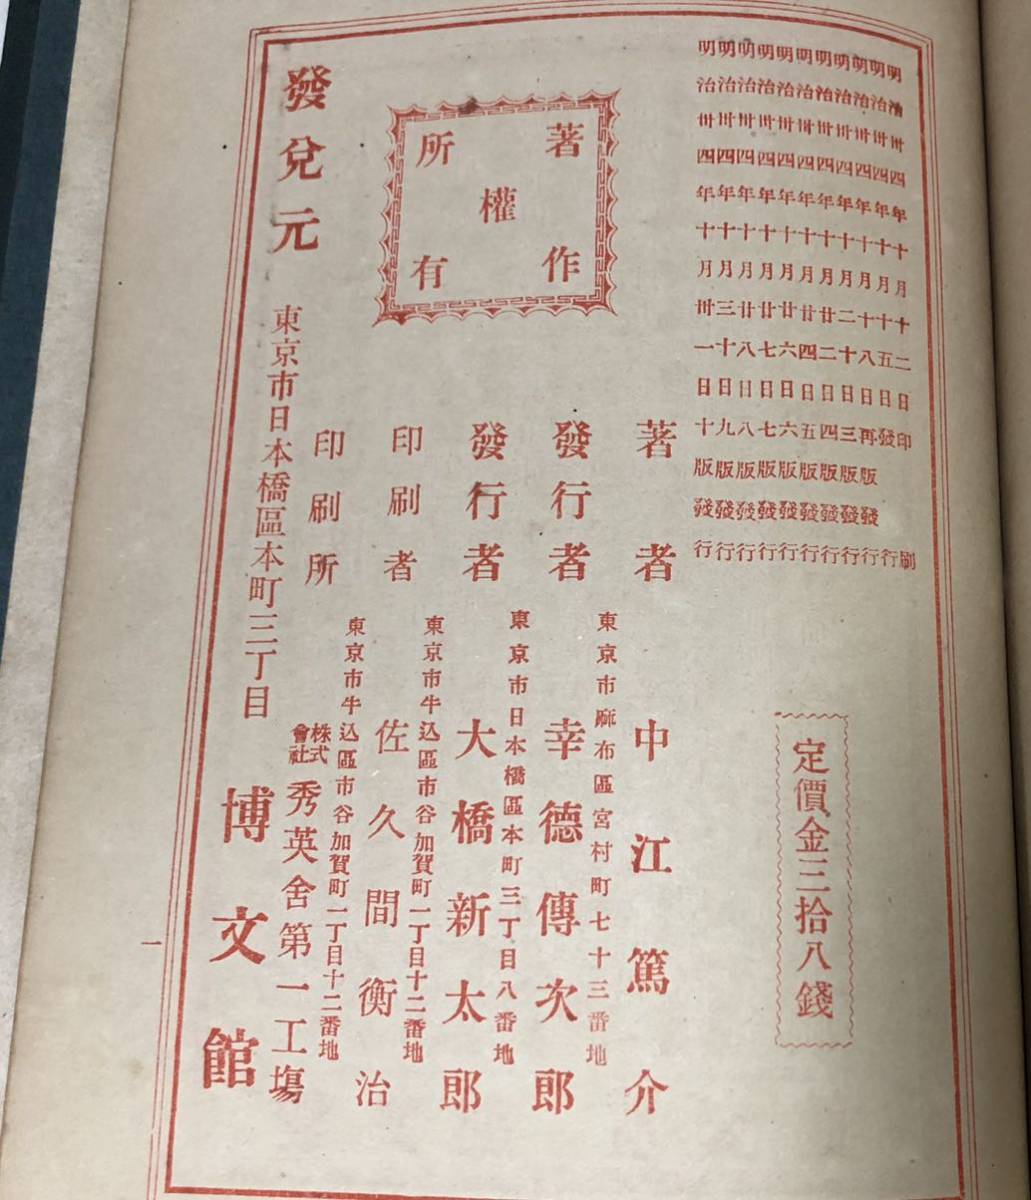 明治卅四年十月十二日印刷
明治卅四年十月十五日發行
明治卅四年十月十八日再版發行
明治卅四年十月二十日三版發行
明治卅四年十月廿二日四版發行
明治卅四年十月廿四日五版發行
明治卅四年十月廿六日六版發行
明治卅四年十月廿七日七版發行
明治卅四年十月廿八日八版發行
明治卅四年十月三十日九版發行
明治卅四年十月卅一日十版發行
定價金三拾八錢
著作
權
所有
著者 中江篤介
東京市麻布區宮村町七十三番地
發行者 幸德傳次郎
東京市日本橋區本町三丁目八番地
發行者 大橋新太郎
東京市牛込區市谷加賀町一丁目十二番地
印刷者 佐久間衡治
東京市牛込區市谷加賀町一丁目十二番地
印刷所 株式會社 秀英舍第一工塲
發兌元 東京市日本橋區本町三丁目 博文館
一